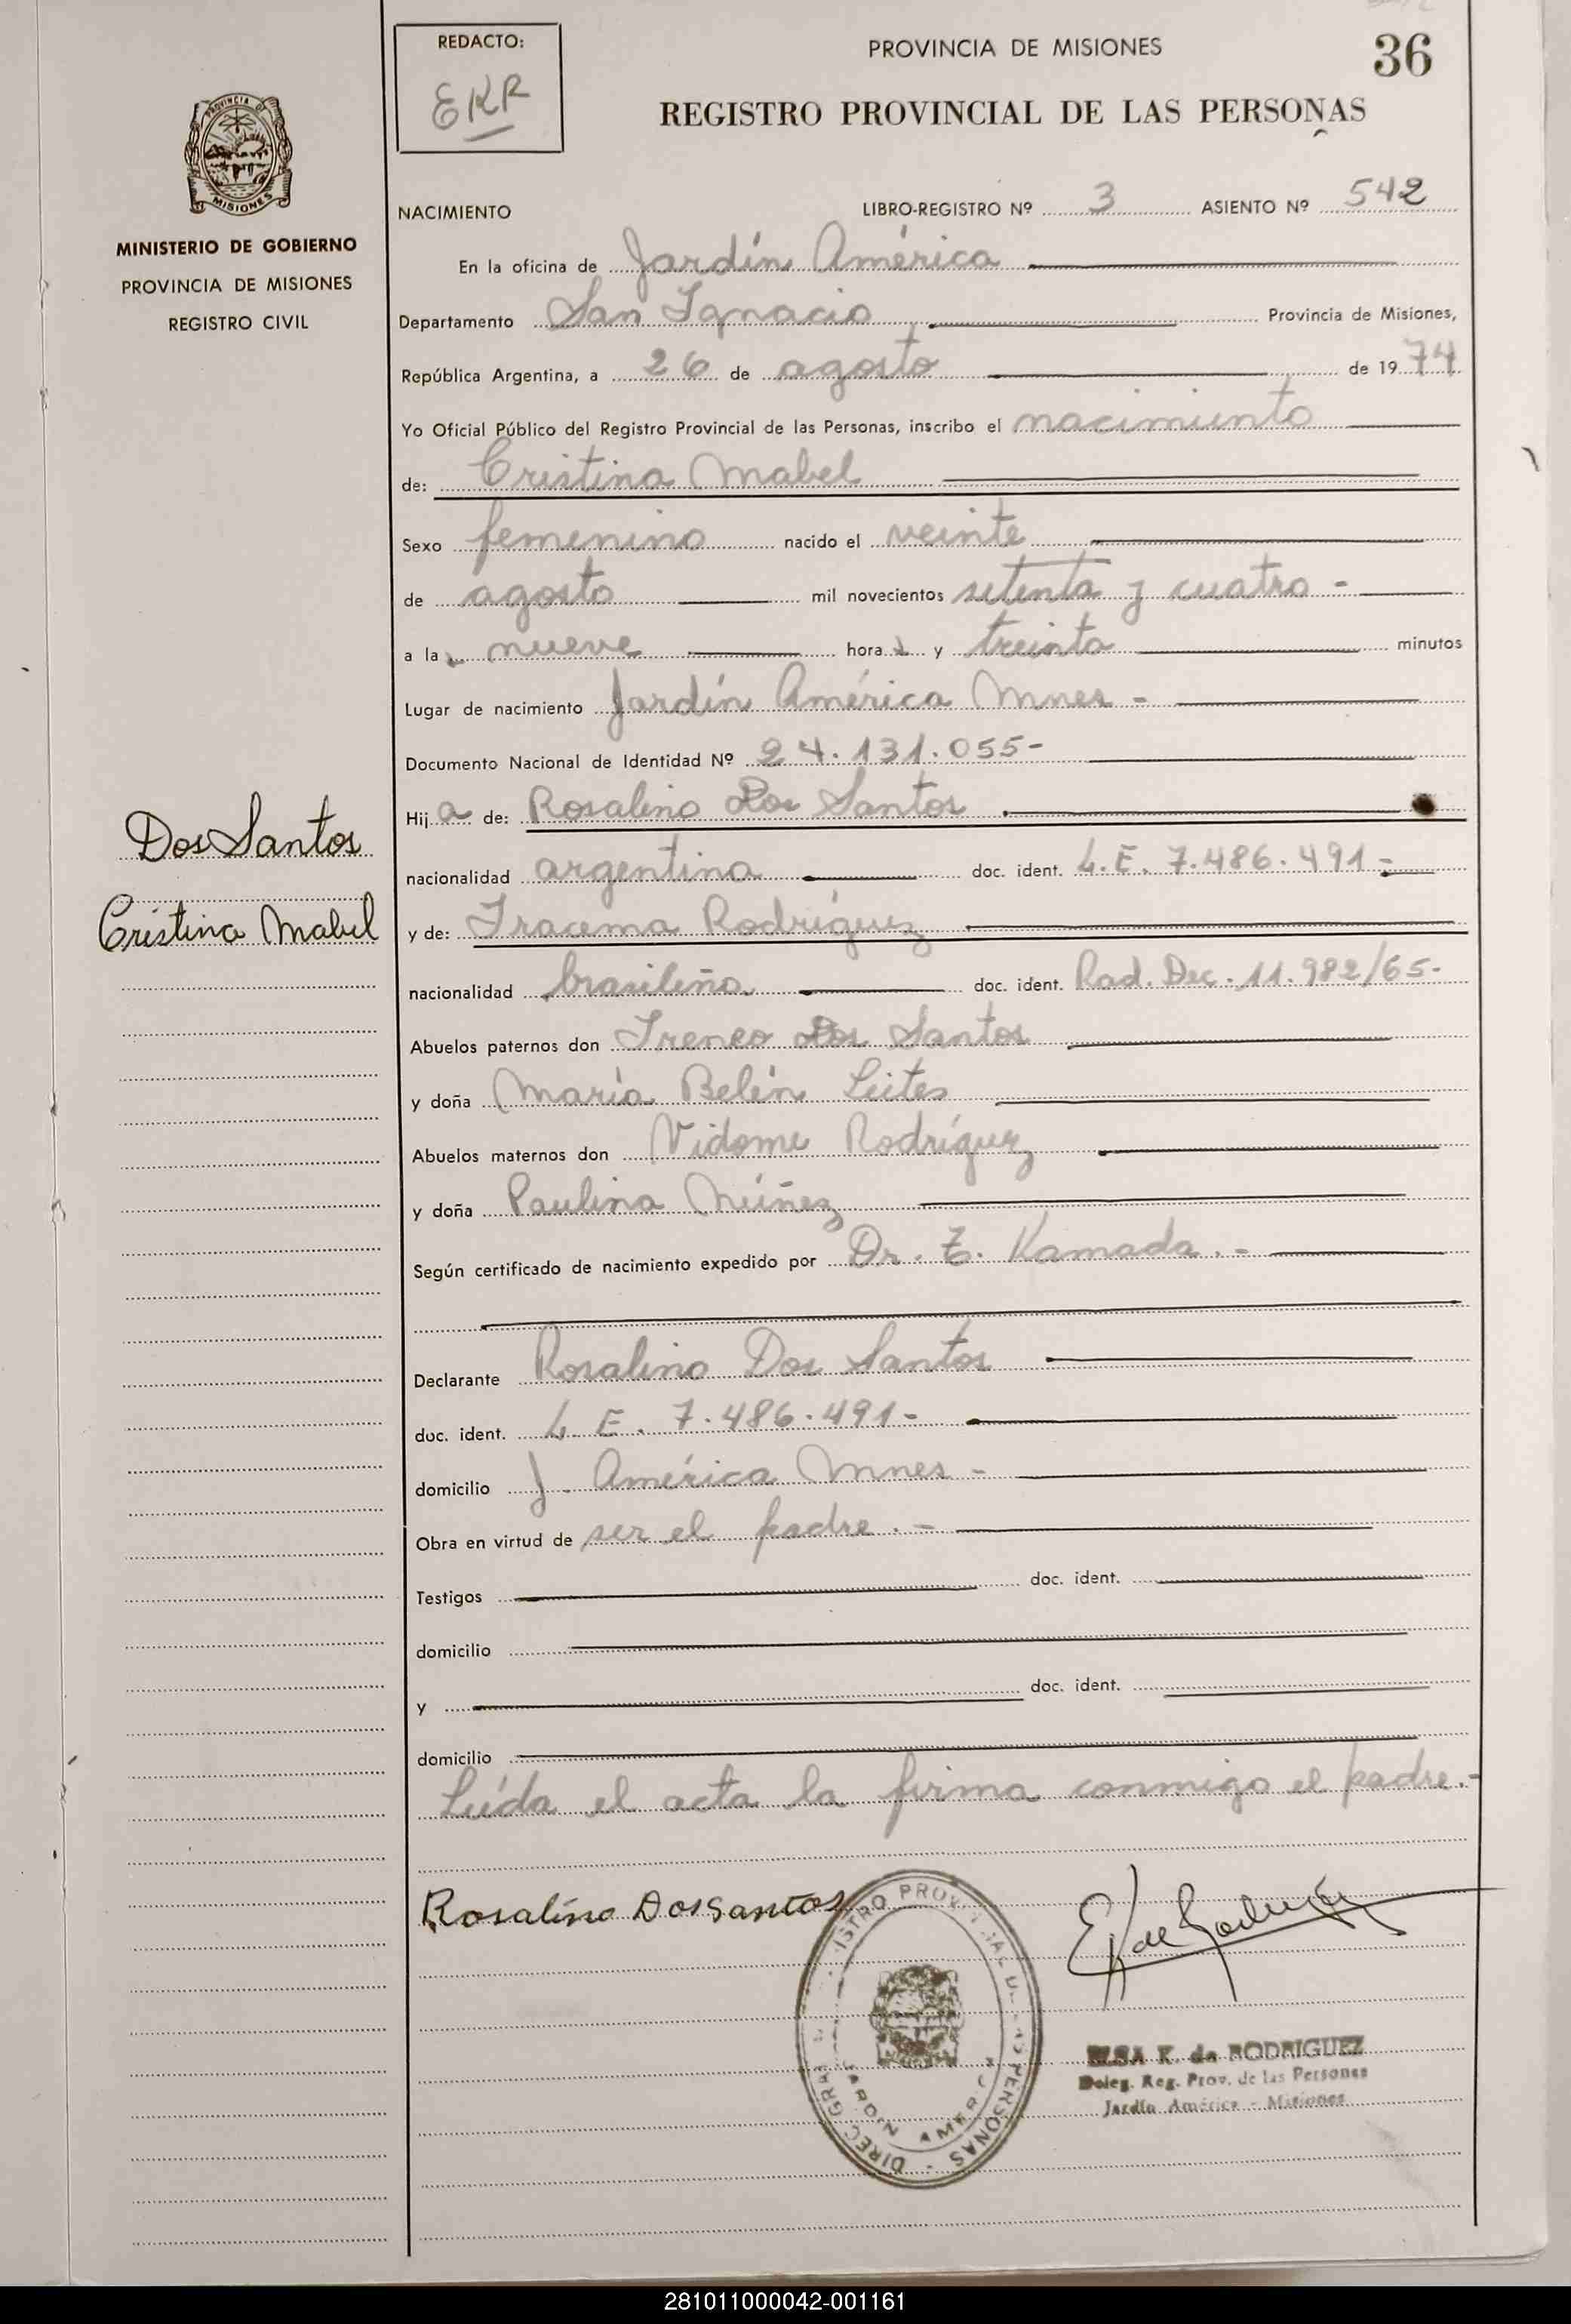 REDACTO:
EKR
PROVINCIA DE MISIONES
36
REGISTRO PROVINCIAL DE LAS PERSONAS
PROVINCIA DE
MISIONES
MINISTERIO DE GOBIERNO
PROVINCIA DE MISIONES
REGISTRO CIVIL
NACIMIENTO LIBRO-REGISTRO Nº 3 ASIENTO Nº 542
En la oficina de Jardín América
Departamento San Ignacio Provincia de Misiones,
República Argentina, a 26 de agosto de 1974
Yo Oficial Público del Registro Provincial de las Personas, inscribo el nacimiento
de: Cristina Mabel
Sexo femenino nacido el veinte
de agosto mil novecientos setenta y cuatro -
a las nueve horas y treinta minutos
Lugar de nacimiento Jardín América Mnes -
Documento Nacional de Identidad Nº 24.131.055-
Hija de: Rosalino Dos Santos
Dos Santos
nacionalidad argentina doc. ident. L.E. 7.486.491.-
Cristina Mabel
y de: Iracema Rodríguez
nacionalidad brasileña doc. ident. Rad. Dec. 11.982/65-
Abuelos paternos don Ireneo Dos Santos
y doña María Belén Leites
Abuelos maternos don Vidome Rodríguez
y doña Paulina Núñez
Según certificado de nacimiento expedido por Dr. Z. Kamada.-
Declarante Rosalino Dos Santos
doc. ident. L.E. 7.486.491-
domicilio J. América Mnes -
Obra en virtud de ser el padre.-
Testigos doc. ident.
domicilio
y doc. ident.
domicilio
Leída el acta la firma conmigo el padre.-
Rosalino Dos Santos
EK de Rodríguez
DIREC. GRAL. REGISTRO PROVINCIAL DE LAS PERSONAS -
JARDIN AMERICA
ELSA K. de RODRIGUEZ
Deleg. Reg. Prov. de las Personas
Jardín América - Misiones
281011000042-001161